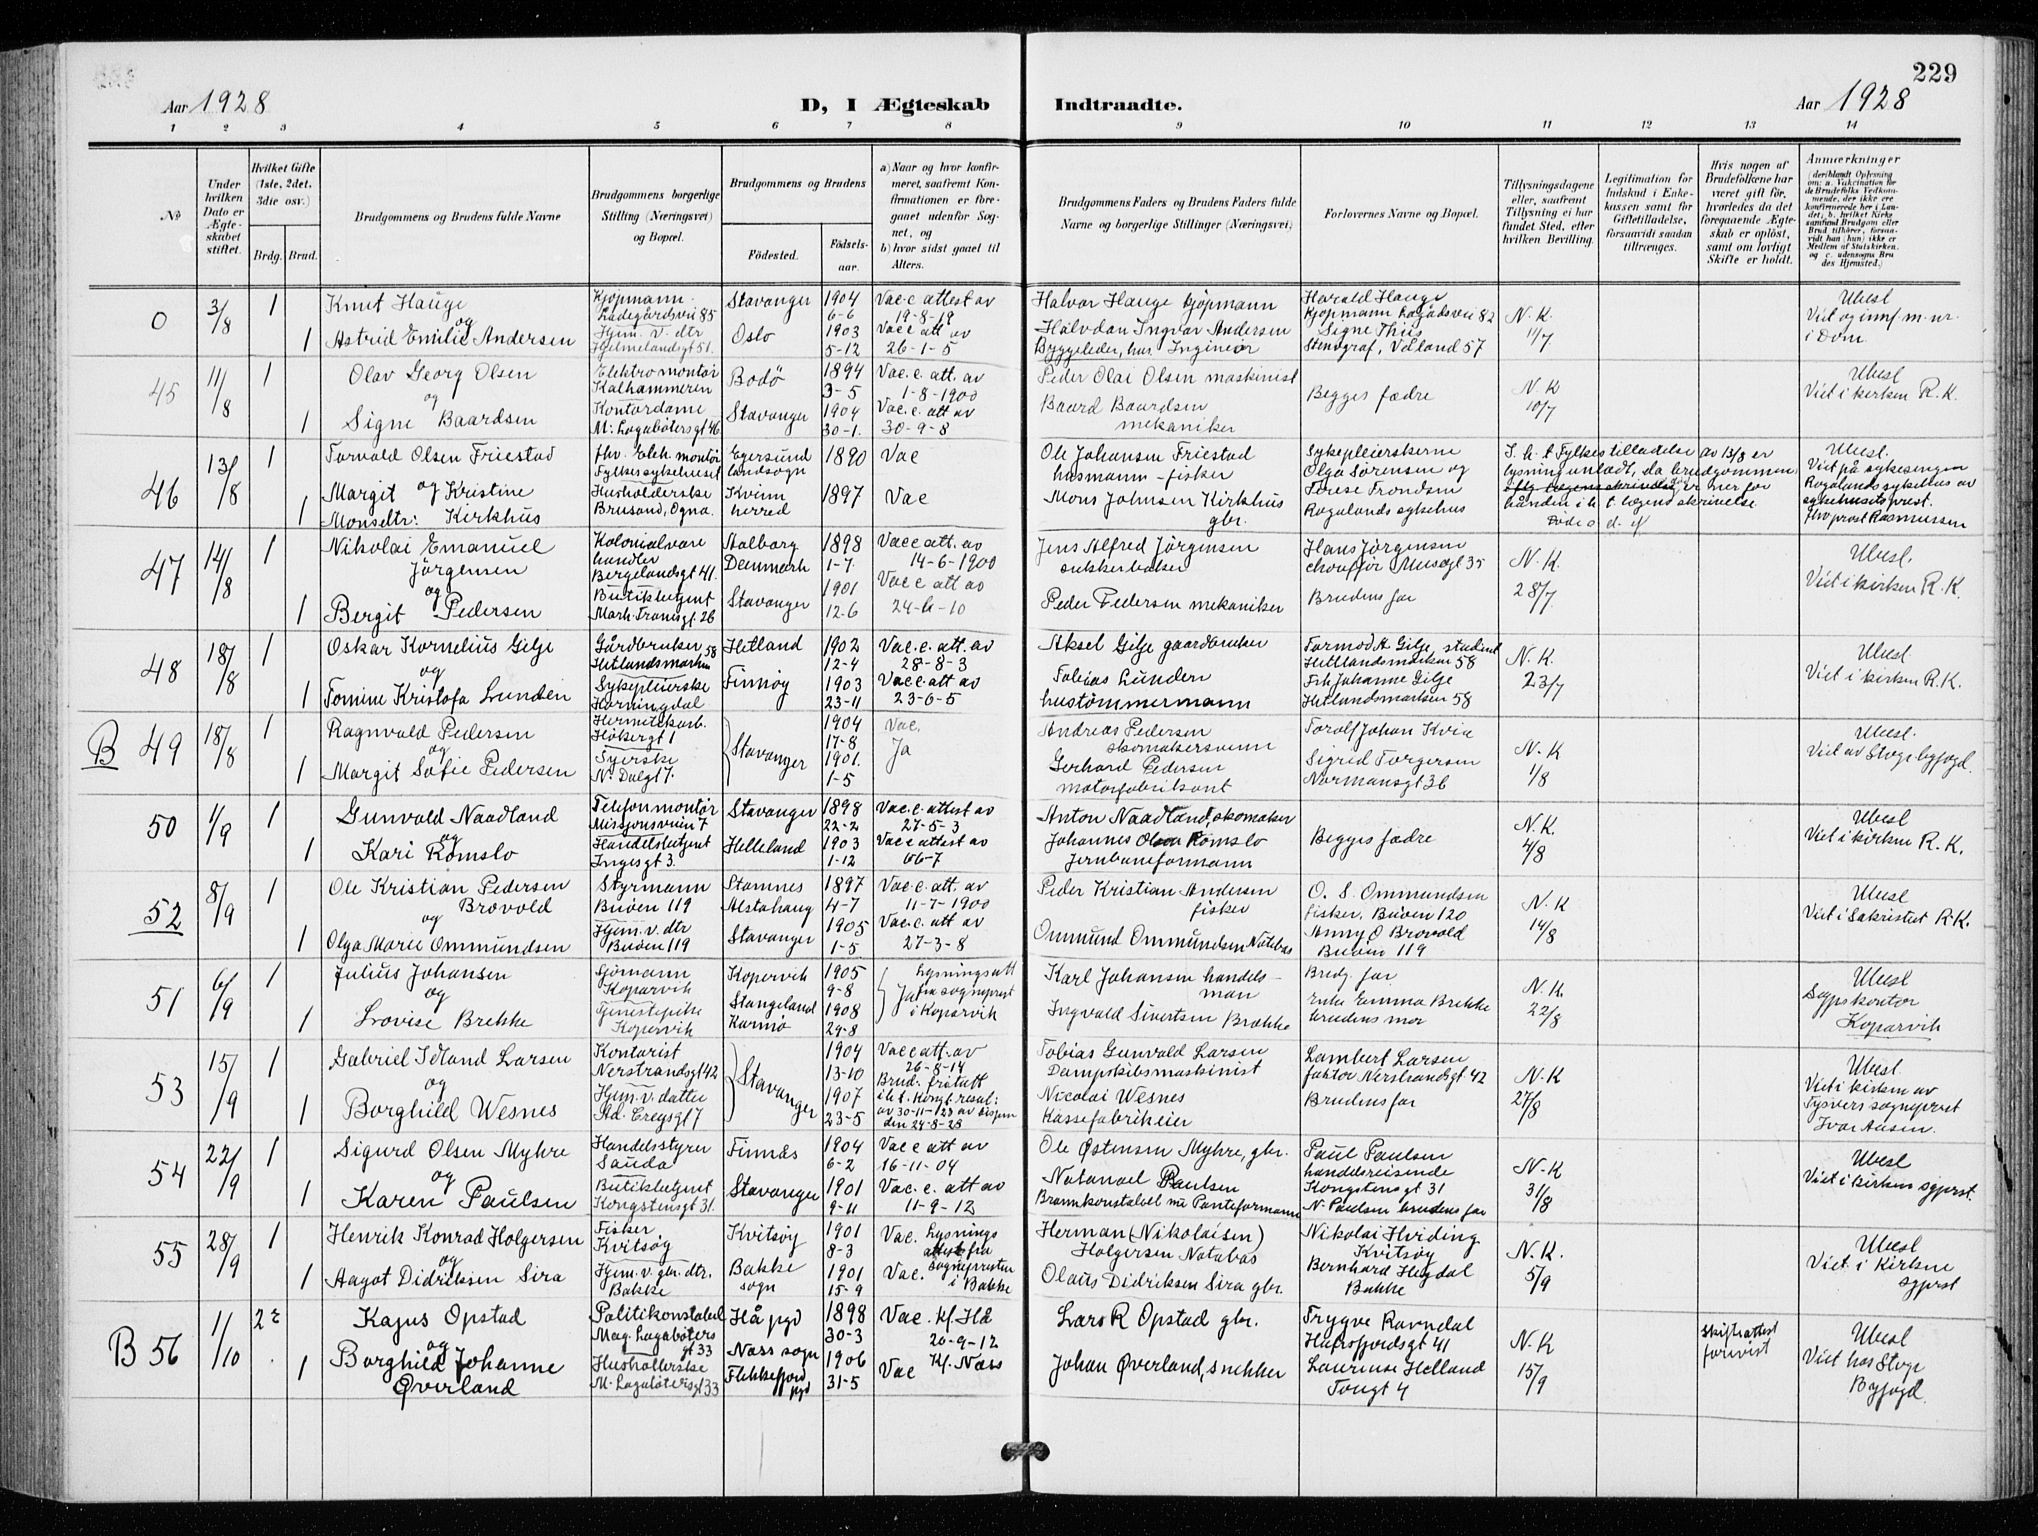 229
Aar 1928
D, I Ægteskab
Indtraadte.
Aar 1928
1 2 3 4 5 6 7 8 9 10 11 12 13 14
No
Under hvilken Dato er Ægteskabet stiftet.
Hvilket Gifte (1ste, 2det, 3die osv.)
Brdg. Brud.
Brudgommens og Brudens fulde Navne
Brudgommens borgerlige Stilling (Næringsvei) og Bopæl.
Brudgommens og Brudens
Fødested.
Fødsels-aar.
a) Naar og hvor konfirmeret, saafremt Konfirmationen er foregaaet udenfor Sognet, og
b) hvor sidst gaaet til Alters.
Brudgommens Faders og Brudens Faders fulde Navne og borgerlige Stillinger (Næringsvei)
Forlovernes Navne og Bopæl.
Tillysningsdagene eller, saafremt Tillysning ei har fundet Sted, efter hvilken Bevilling.
Legitimation for Indskud i Enkekassen samt for Giftetilladelse, forsaavidt saadan tiltrænges.
Hvis nogen af Brudefolkene har været gift før, hvorledes da det foregaaende Ægteskab er opløst, samt om lovligt Skifte er holdt.
Anmærkninger
(deriblandt Oplysning om: a. Vakcination for de Brudefolks Vedkommende, der ikke ere konfirmerede her i Landet, b. hvilket Kirkesamfund Brudgom eller Brud tilhører, forsaavidt han (hun) ikke er Medlem af Statskirken, og c. udensogns Brudes Hjemsted.)
0 3/8 1 Knut Hauge Kjøpmann Ladegårdsvei 85 Stavanger 1904 6-6 Vac.c. attest av 19-8-19 Halvor Hauge kjöpmann Harald Hauge kjøpmann Lagårdsvei 82 N.K. Ubesl
og
1 Astrid Emilie Andersen Hjem. v. dtr Hjelmelandsgt 51. Oslo 1903 5-12 Vac c att av 26-1-5 Halvdan Ingvar Andersen Byggeleder, hus. Ingeniør Signe Thiis Stenograf, Våland 57 11/7 Viet og innf. m. nr. i Dom.
45 11/8 1 Olav Georg Olsen Elektromontör Kalhammeren Bodö 1894 3-5 Vac.c. att. av 1-8-1900 Peder Olai Olsen maskinist Begges fædre N.K 10/7 Ubesl
og
1 Signe Baardsen Kontordame M. Lagabötersgt 46 Stavanger 1904 30-1. Vac.c. att av 30-9-8 Baard Baardsen mekaniker Viet i kirken R.K.
46 13/8 1 Torvald Olsen Friestad fhv. Elek. montör Fylkessykehuset Egersund landsogn 1890 Vac Ole Johansen Friestad husmann-fisker Sykepleierskerne Olga Sörensen og I.h.t Fylkets tilladelse av 13/8 er lysning unladt, da brudgommen Ubesl. Viet på sykesengen
1 Margit og Kristine Monsdtr: Kirkhus Husholderske Brusand, Ogna Kvinnherred 1897 Vac Mons Johnsen Kirkhus gbr. Terese Trondsen Rogalands sykehus er nær for döden i h. t. lægens skrivelse Rogalands sykehus av sykehusets prest. Hro prost Rasmussen
47 14/8 1 Nikolai Emanuel Jörgensen Kolonialvare handler Bergelandsgt 41. Aalborg Danmark 1898 1-7. Vacc att. av 14-6-1900 Jens Alfred Jörgensen sukkerbaker Hans Jörgensen chouffør Musegt 35 N.K. Ubesl.
og
1 Bergit Pedersen Butikbetjent Mark. Tranisgt. 26 Stavanger 1901 12-6 Vac c att av 24-4-10 Peder Pedersen mekaniker Brudens far 28/7. Viet i kirken R.K.
48 18/8 1 Oskar Kornelius Gilje Gårdbruker Hetlandsmarken 58 Hetland 1902 12-4 Vac.c. att. av 28-8-3 Aksel Gilje gaardbruker Tormod A Gilje, student Hetlandsmarken 58 N.K. Ubesl
og
1 Tomine Kristofa Lunden Sykepleierske Horningdal Finnøy 1903 23-11 Vac c. att av 23-6-5 Tobias Lunden hustömmermann Frk Johanne Gilje Hetlandsmarken 58 23/7 Viet i kirken R.K.
B 49 18/8 1 Ragnvald Pedersen Hermetikarb. Hökergt 1 Stavanger 1904 17-8 Vac. Andreas Pedersen skomakersvenn Torolf Johan Kvia N.K Ubesl.
og
1 Margit Sofie Pedersen Syerske N. Dalgt 7. 1901. 1-5 Ja Gerhard Pedersen motorfabrikant Sigrid Torgersen Normansgt 36 1/8 Viet av Stvgr byfogd.
50 1/9 1 Gunvald Naadland Telefonmontör Missjonsveien 7 Stavanger 1898 22-2 Vac.c. attest av 27-5-3 Anton Naadland, skomaker Begges fædre N.K. Ubesl
og
1 Kari Römslo Handelsbetjent Ingesgt 3. Helleland 1903 1-12 Vac c attest av 66-7 Johannes Olsen Römslo Jernbaneformann 4/8 Viet i kirken R.K.
52 8/9 1 Ole Kristian Pedersen Brovold Styrmann Buöen 119 Stamnes Alstahaug 1897 4-7 Vac.c. att. av 11-7-1900 Peder Kristian Andersen fisker O. S. Ommundsen fisker, Buöen 120 N.K Ubesl
og
1 Olga Marie Ommundsen Hjem. v. dtr Buöen 119 Stavanger 1905 1-5 Vac.c. att av 27-3-8 Ommund Ommundsen Notebas Anny O Brovold Buöen 119 14/8 Viet i Sakristiet R.K.
51 6/9 1 Julius Johansen Sjömann Kopervik Kopervik 1905 9-8 Ja Lysningsatt fra sogneprest i Kopervik Karl Johansen handelsman Brudg. far N.K. Ubesl
og
1 Lovise Brekke Tjenestepike Kopervik Stangeland Karmö 1908 29-8 Ingvald Sivertsen Brække Enke Emma Brekke brudens mor 22/8 Sgpskontor Koparvik
53 15/9 1 Gabriel Idland Larsen Kontorist Nerstrandsgt 42 Stavanger 1904 13-10 Vac c att. av 26-8-14 Tobias Gunvald Larsen Dampskibsmaskinist Lambert Larsen faktor Nerstrandsgt 42 N.K Ubesl.
og
1 Borghild Wesnes Hjem. v. datter 1907 23-5 Nicolai Wesnes Kassefabrikeier Brudens far 27/8 Viet i kirken av Tysvers sogneprest Ivar Aasen.
54 22/9 1 Sigurd Olsen Myhre Handelsstyrer Sauda Finnås 1904 6-2 Vac c att av 16-11-04 Ole Østensen Myhre, gbr. Paul Paulsen handelsreisende Kongstensgt 31 N.K Ubesl
og
1 Karen Paulsen Butikbetjent Kongstensgt 31. Stavanger 1901 9-11 Vac. c. att av 11-9-12 Natanael Paulsen Brannkonstabel nu Panteformann N. Paulsen brudens far 31/8 Viet i kirken sgprst.
55 28/9 1 Henrik Konrad Holgersen Fisker Kvitsøy Kvitsøy 1901 8-3 Vac. Lysnings attest fra sognepresten i Bakke Herman (Nikolaisen) Holgersen Notabas Nikolai Hviding Kvitsøy N.K. Ubesl
og
1 Aagot Didriksen Sira Hjem. v. gbr. dtr. Bakke Bakke sogn 1901 15-9 Vac. Olaus Didriksen Sira gbr. Bernhard Hegdal Bakke 5/9 Viet i Kirkne sgprst
B 56 1/10 2 Kajus Opstad Politikonstabel Mag. Lagabøters gt 33 Hå pgd 1898 30-3 Vac. kf. Hå 20-9-12 Lars R Opstad gbr. Trygve Ravndal Hafrsfjordsgt 41 N.K Skifteattest forevist Ubesl
og
1 Borghild Johanne Øverland Husholderske M. Lagabötersgt 33 Næss sogn Flekkefjord pgd 1906 31-5 Vac kf. Næss Johan Øverland, snekker Laurense Helland Tougt 4 15/9 Viet hos Stvgr Byfogd.